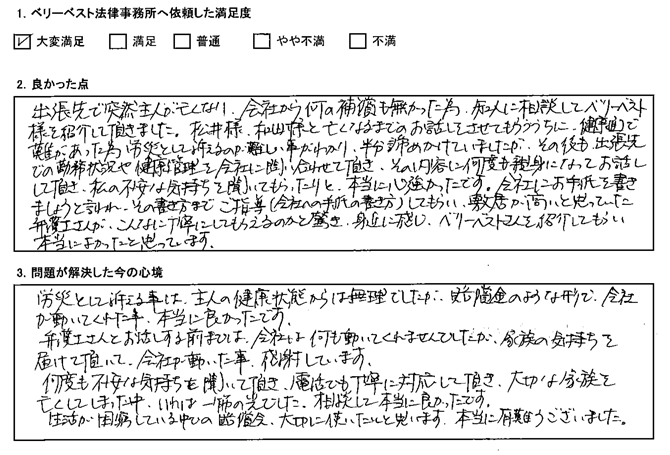 1. ベリーベスト法律事務所へ依頼した満足度
大変満足 満足 普通 やや不満 不満
2. 良かった点
出張先で突然主人が亡くなり、会社から何の補償も無かった為、知人に相談してベリーベスト
様を紹介して頂きました。松井様、和田様と亡くなるまでのお話しをさせてもらううちに、健康面で
難があった為労災として訴えるのが難しい事がわかり、半分諦めかけていましたが、その後も出張先
での勤務状況や健康管理を会社に問い合わせて頂き、その内容に何度も親身になってお話し
して頂き、私の不安な気持ちを聞いてもらったりと、本当に心強かったです。会社にお手紙を書き
ましょうと言われ、その書き方までご指導(会社への手紙の書き方)してもらい、敷居が高いと思っていた
弁護士さんが、こんなに丁寧にしてもらえるのかと驚き、身近に感じ、ベリーベストさんを紹介してもらい
本当によかったと思っています。
3. 問題が解決した今の心境
労災として訴える事は、主人の健康状態からは無理でしたが、見舞金のような形で、会社
が動いてくれた事、本当に良かったです。
弁護士さんとお話しする前までは、会社は何も動いてくれませんでしたが、家族の気持ちを
届けて頂いて、会社が動いた事、感謝しています。
何度も不安な気持ちを聞いて頂き、電話でも丁寧に対応して頂き、大切な家族を
亡くしてしまった中、いわば一筋の光でした。相談して本当に良かったです。
生活が困窮している中での見舞金、大切に使いたいと思います。本当に有難うございました。